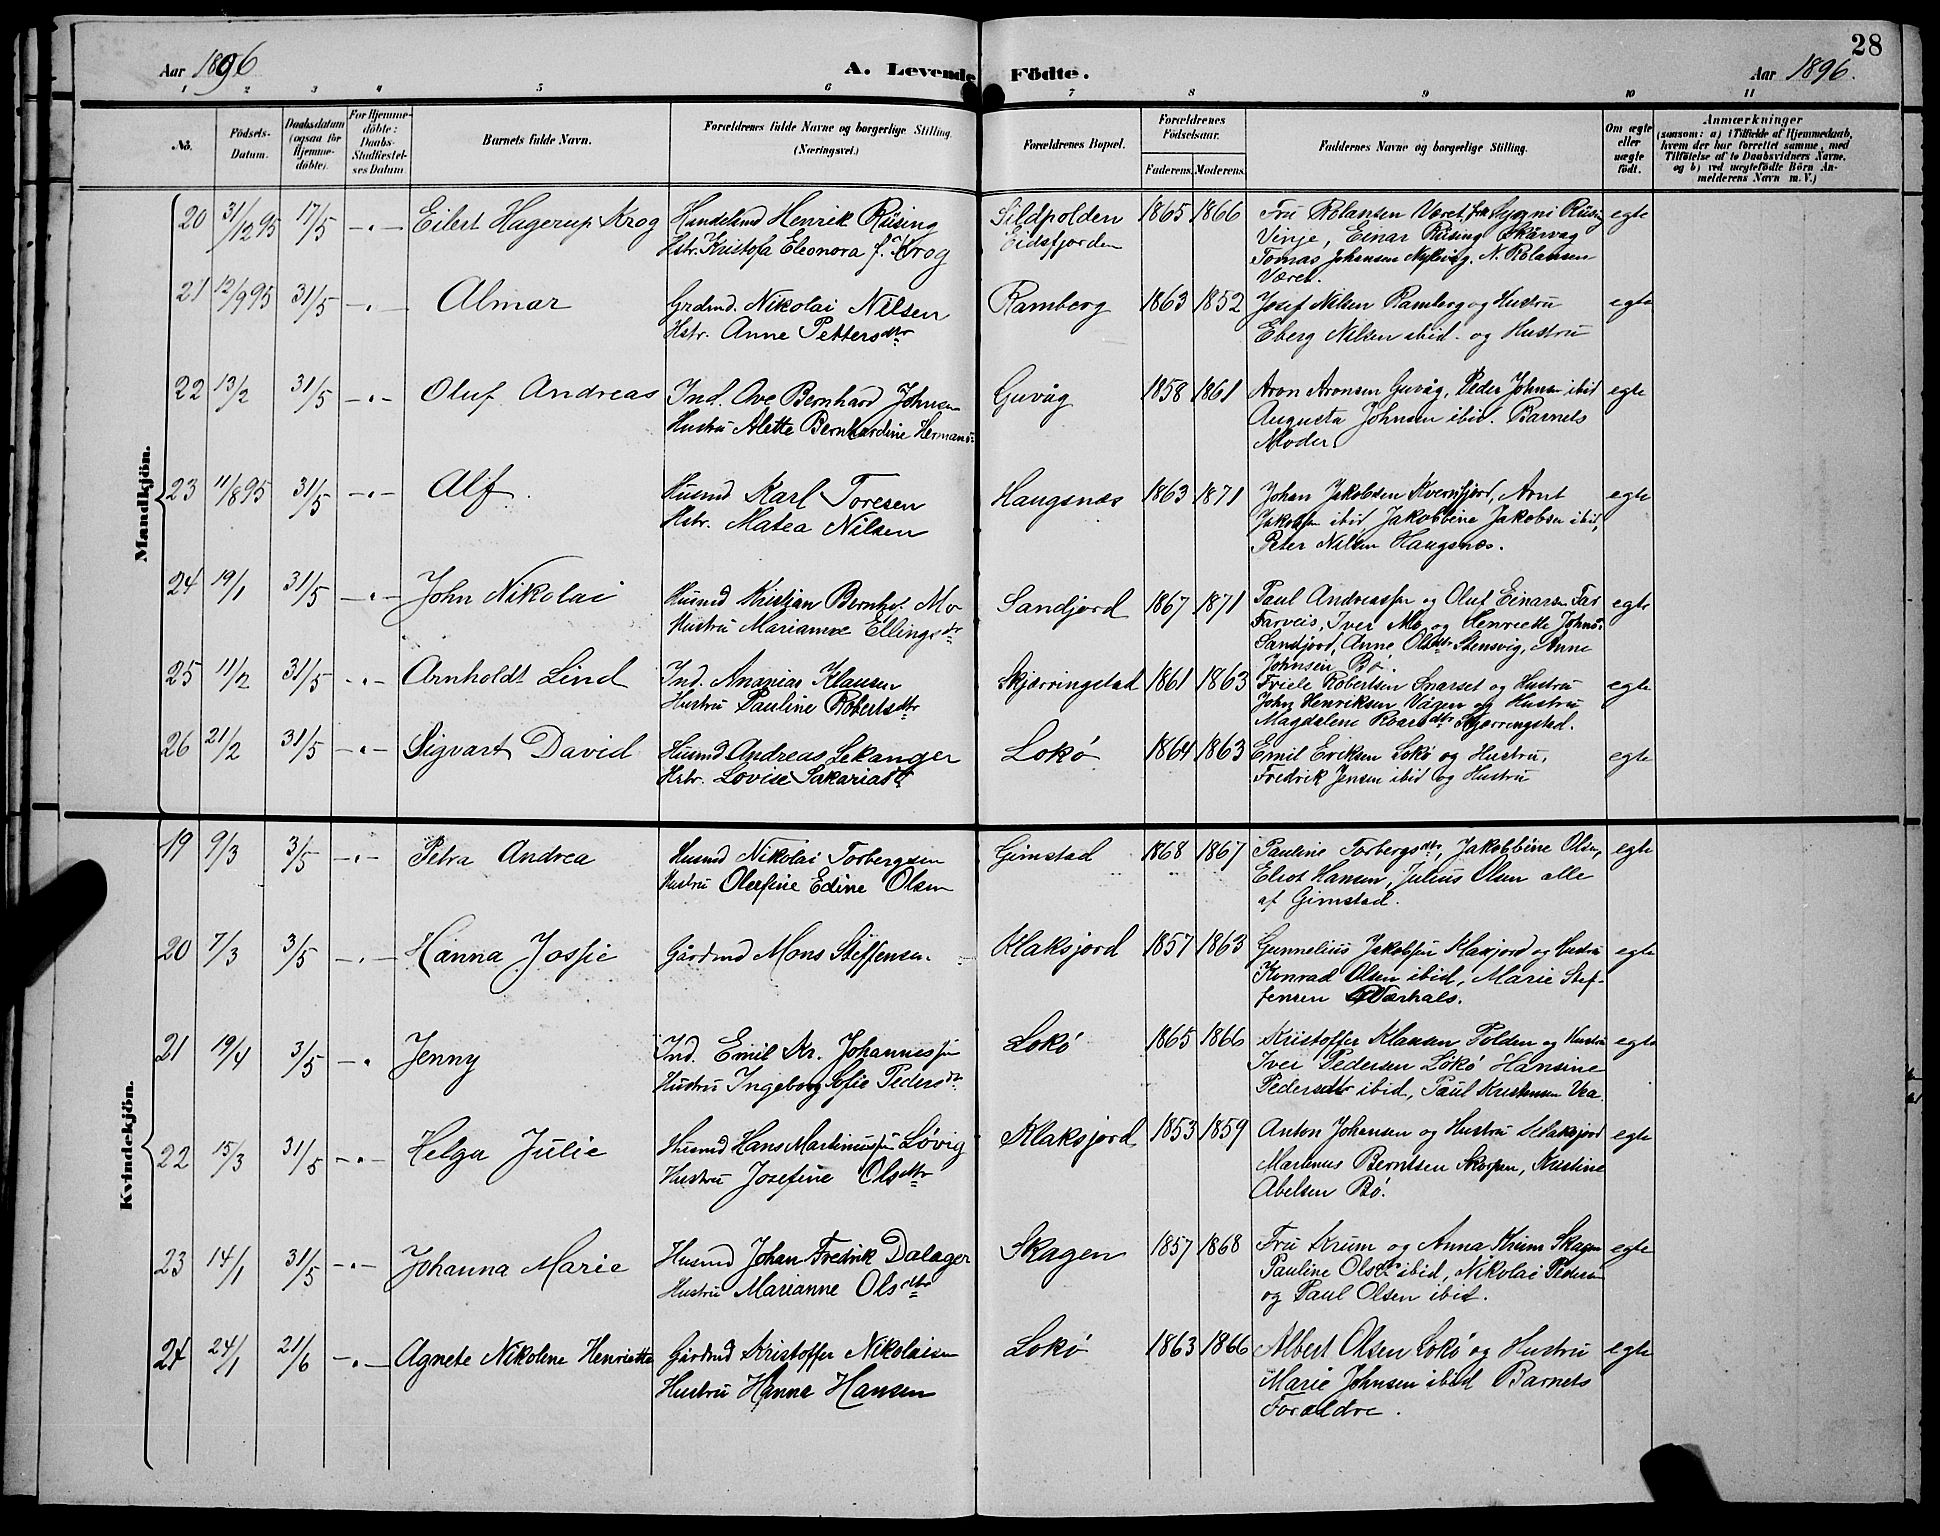 28
Aar 1896 A. Levende Födte. Aar 1896.
1 2 3 4 5 6 7 8 9 10 11
No. Födsels-Datum. Daabsdatum (ogsaa för Hjemme-döbte). For Hjemme-döbte: Daabs-Stadfæstel-ses Datum Barnets fulde Navn. Forældrenes fulde Navne og borgerlige Stilling. (Næringsvei.) Forældrenes Bopæl. Forældrenes Födselsaar. Faderens. Moderens. Faddernes Navne og borgerlige Stilling. Om ægte eller uægte født. Anmærkninger (saasom: a) i Tilfælde af Hjemmedaab, hvem der har forrettet samme, med Tilföielse af to Daabsvidners Navne, og b) ved uægtefödte Börn An-melderens Navn m. V.)
Mandkjön.
20 31/12 95 17/5 -"- Eilert Hagerup Krog Handelsmd Henrik Rüsing Sildpolden 1865 1866 Fru Rolansen Været, frk Sygni Rüsing egte
Hstr. Kristofa Eleonora f. Krog Eidsfjorden Vinje, Einar Rüsing Skårvag
Tomas Johansen Nykvåg, N. Rolansen
Været.
21 12/9 95 31/5 -"- Almar Grdmd. Nikolai Nilsen Ramberg 1863 1852 Josef Nilsen Ramberg og Hustru egte
Hstr. Anne Pettersdtr Eberg Nilsen ibid. og Hustru
22 13/2 31/5 -"- Oluf Andreas Ind. Ave Bernhard Johnsen Guvåg 1858 1861 Aron Aronsen Guvåg, Peder Johnsen ibid egte
Hustru Alette Bernhardine Hermans: Augusta Johnsen ibid. Barnets
Moder.
23 11/8 95 31/5 -"- Alf. Husmd Karl Toresen Haugsnæs 1863 1871 Johan Jakobsen Kvernfjord, Arnt egte
Hstr. Matea Nilsen Jakobsen ibid, Jakobbine Jakobsen ibid,
Peter Nilsen Haugsnæs.
24 19/1 31/5 -"- John Nikolai Husmd Kristjan Bernh. Mo Sandjord 1867 1871 Paul Andreassen og Oluf Einarsen egte
Hustru Marianne Ellingsdtr Farveis, Iver Mo og Henriette Johns:
Sandjord, Anne Olsdtr Stensvig, Anne
Johnsen Bø.
25 11/2 31/5 -"- Arnholdt Lind Ind. Ananias Klausen Skjærringstad 1861 1863 Friele Robertsen Snarset og Hustru egte
Hustru Pauline Robertsdtr John Henriksen Vågen og Hustru
Magdalene Roarsdtr Skjærringstad.
26 21/2 31/5 -"- Sigvart David Husmd Andreas Lekanger Lokø 1864 1863 Emil Eriksen Lokø og Hustru, egte
Hstr. Lovise Sakariasdtr Fredrik Jensen ibid og Hustru
Kvindekjön.
19 9/3 3/5 -"- Petra Andrea Husmd Nikolai Torbergsen Gimstad 1868 1867 Pauline Torbergsdtr, Jakobbine Olsen, egte
Hustru Olefine Edine Olsen Eliot Hansen, Julius Olsen alle
af Gimstad.
20 7/3 3/5 -"- Hanna Jossie Gårdmd Mons Steffensen. Klaksjord 1857 1863 Gunnelius Jakobsen Klaxjord og Hustru egte
Konrad Olsen ibid, Marie Stef-
fensen Værhals.
21 19/4 3/5 -" Jenny Ind. Emil Kr. Johannessen Lokø 1865 1866 Kristoffer Klausen Polden og Hustru egte
Hustru Ingeborg Sofie Pedersdtr. Iver Pedersen Lokø Hansine
Pedersdtr ibid, Paul Kristensen Vea.
22 15/3 31/5 -"- Helga Julie Husmd Hans Martinussen Løvig Klaksjord 1853 1859 Anton Johansen og Hustru Klaksjord egte
Hustru Josefine Olsdtr Martinus Berntsen Skorpen, Kristine
Abelsen Bø.
23 14/1 31/5 -"- Johanna Marie Husmd Johan Fredrik Dalager Skagen 1857 1868 Fru Krum og Anna Krum Skagen egte
Hustru Marianne Olsdtr Pauline Olsdtr ibid, Nikolai Pedersen
og Paul Olsen ibid.
24 24/1 21/6 -"- Agnete Nikoline Henriette Gårdmd Kristoffer Nikolaisen Lokø 1863 1866 Albert Olsen Lokø og Hustru egte
Hustru Hanna Hansen Marie Johnsen ibid Barnets
Forældre.